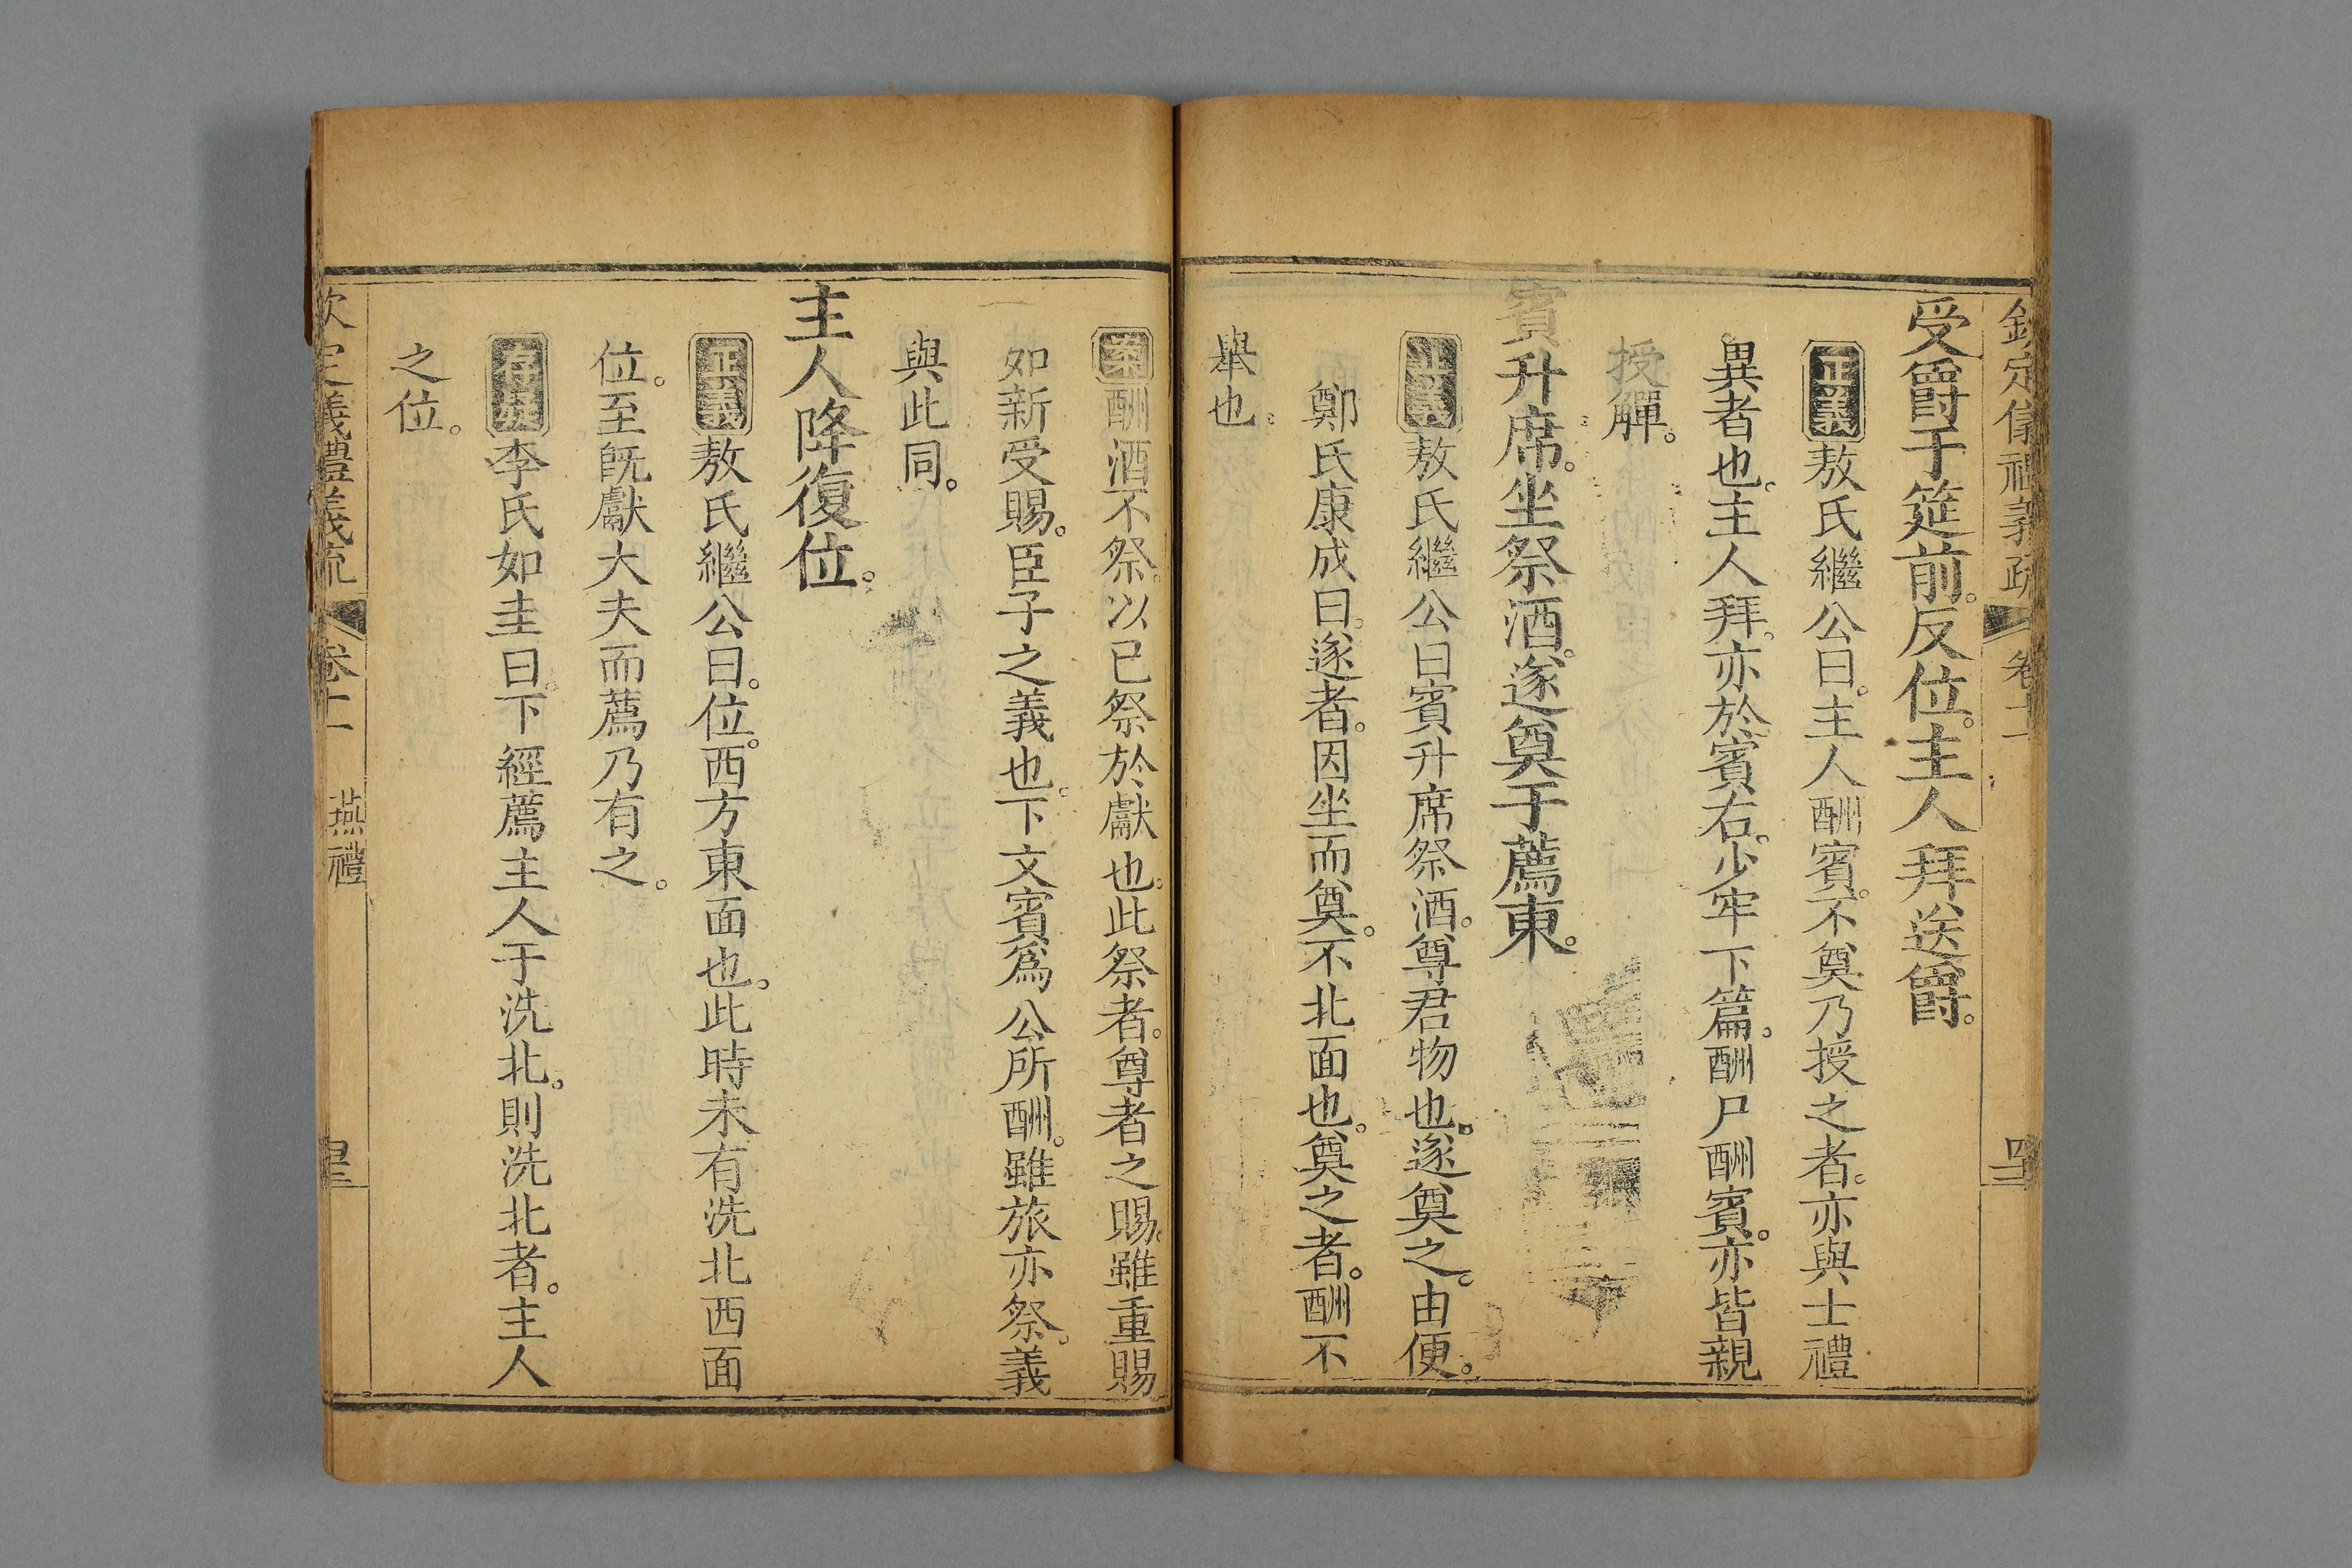 欽定儀禮義疏 卷十一
受爵于筵前。反位。主人拜送爵。
正義敖氏繼公曰。主人酬賓。不奠乃授之者。亦與士禮
異者也。主人拜。亦於賓右。少牢下篇。酬尸酬賓。亦皆親
授觶。
賓升席。坐祭酒。遂奠于薦東。
正義敖氏繼公曰賓升席祭酒。尊君物也。遂奠之。由便。
鄭氏康成曰。遂者。因坐而奠。不北面也。奠之者。酬不
舉也。
案酬酒不祭。以已祭於獻也。此祭者。尊者之賜。雖重賜
如新受賜。臣子之義也。下文賓爲公所酬。雖旅亦祭。義
與此同。
主人降復位。
正義敖氏繼公曰。位。西方東面也。此時未有洗北西面
位。至既獻大夫而薦乃有之。
存疑李氏如圭曰。下經薦主人于洗北。則洗北者。主人
之位。
欽定義禮義疏 卷十一 燕禮